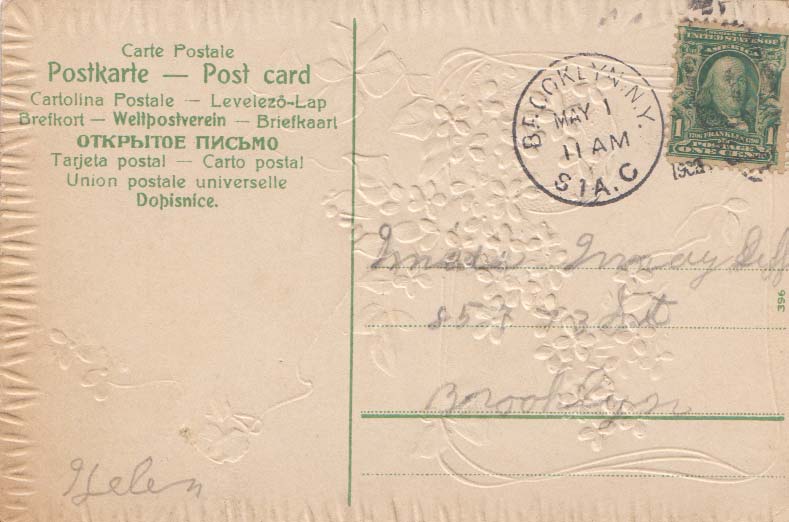 Carte Postale
Postkarte — Post card
Cartolina Postale — Levelező-Lap
Brefkort — Weltpostverein — Briefkaart
ОТКРЫТОЕ ПИСЬМО
Tarjeta postal — Carto postal
Union postale universelle
Dopisnice.
BROOKLYN, N.Y.
MAY 1
11 AM
STA. C
UNITED STATES OF
AMERICA
1 FRANKLIN 1
POSTAGE
ONE CENT
396
857 73 St
Brooklyn
Helen